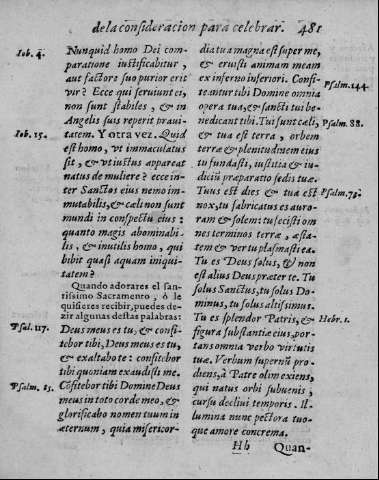 de la consideracion para celebrar. 481
Iob. 4.
Nunquid homo Dei com-
paratione iustificabitur,
aut factore suo purior erit
vir? Ecce qui seruiunt ei,
non sunt stabiles, & in
Angelis suis reperit praui-
Iob. 15.
tatem. Y otra vez. Quid
est homo, vt immaculatus
sit, & vt iustus appareat
natus de muliere? ecce in-
ter Sanctos eius nemo im-
mutabilis, & cæli non sunt
mundi in conspectu eius:
quanto magis abominabi-
lis, & inutilis homo, qui
bibit quasi aquam iniqui-
tatem?
Quando adorares el san-
tissimo Sacramento, ò le
quisieres recibir, puedes de-
zir algunas destas palabras:
Psal. 117.
Deus meus es tu, & confi-
tebor tibi, Deus meus es tu,
& exaltabo te: confitebor
tibi quoniam exaudisti me.
Psalm. 85.
Cõfitebor tibi Domine Deus
meus in toto corde meo, &
glorificabo nomen tuum in
æternum, quia misericor-
dia tua magna est super me,
& eruisti animam meam
ex inferno inferiori. Confi-
Psalm. 144.
teantur tibi Domine omnia
opera tua, & sancti tui be-
nedicant tibi. Tui sunt cæli,
Psalm. 88.
& tua est terra, orbem
terræ & plenitudinem eius
tu fundasti, iustitia & iu-
diciũ præparatio sedis tuæ.
Tuus est dies & tua est
Psalm. 73.
nox, tu fabricatus es auro-
ram & solem: tu fecisti om
nes terminos terræ, æsta-
tem & ver tu plasmasti ea.
Tu es Deus solus, & non
est alius Deus præter te. Tu
solus Sanctus, tu solus Do-
minus, tu solus altissimus.
Tu es splendor Patris, &
Hebr. 1.
figura substantiæ eius, por-
tans omnia verbo virtutis
tuæ. Verbum supernũ pro-
diens, à Patre olim exiens,
qui natus orbi subuenis,
cursu decliui temporis. Il-
lumina nunc pectora tuo-
que amore concrema.
Hh
Quan-